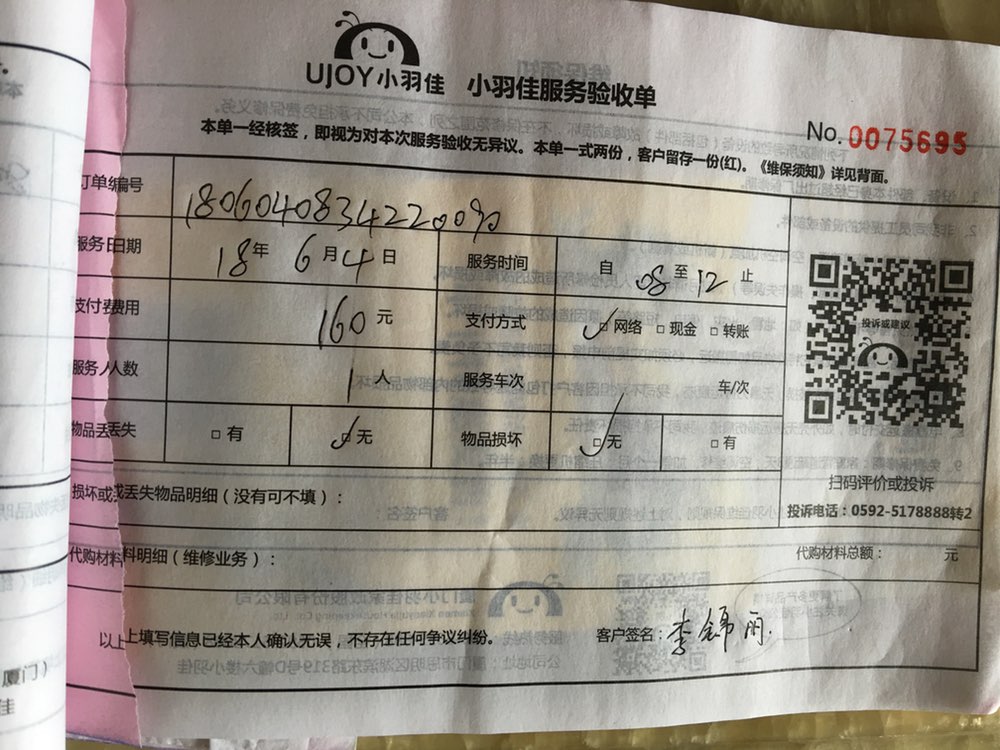 UJOY小羽佳 小羽佳服务验收单
No. 0075695
本单一经核签，即视为对本次服务验收无异议。本单一式两份，客户留存一份(红)。《维保须知》详见背面。
订单编号
服务日期 18年 6月4日 服务时间 自 08 至 12 止
支付费用 160元 支付方式 网络 现金 转账
投诉或建议
服务人数 1人 服务车次 车/次
物品丢失 有 无 物品损坏 无 有
扫码评价或投诉
损坏或丢失物品明细（没有可不填）：
投诉电话：0592-5178888转2
代购材料明细（维修业务）： 代购材料总额： 元
以上填写信息已经本人确认无误，不存在任何争议纠纷。 客户签名：李锦雨